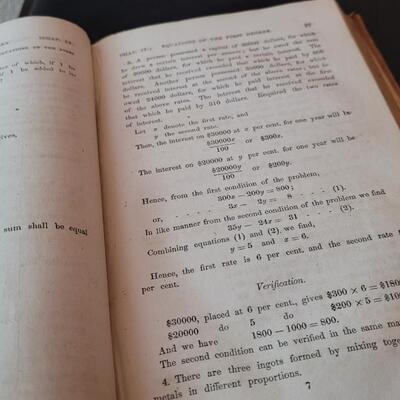 CHAP. IV.
EQUATIONS OF THE FIRST
of which, if
if 1 be added to the
gives,
sum shall be equal
CHAP. IV.] EQUATIONS OF THE FIRST DEGREE. 97
3. A person possessed a capital of 30000 dollars, for which
he drew a certain interest per annum; but he owed the sum
of 20000 dollars, for which he paid a certain interest. The
interest that he received exceeded that which he paid by 800
dollars. Another person possessed 35000 dollars, for which
he received interest at the second of the above rates; but he
owed 24000 dollars, for which he paid interest at the first
of the above rates. The interest that he received exceeded
that which he paid by 310 dollars. Required the two rates
of interest.
Let x denote the first rate, and
y the second rate.
Then, the interest on $30000 at x per cent. for one year will be
$30000x
100 or $300x.
The interest on $20000 at y per cent. for one year will be
$20000y
100 or $200y.
Hence, from the first condition of the problem,
300x − 200y = 800;
or, . . . . 3x − 2y = 8 . . . . (1).
In like manner from the second condition of the problem we find
35y − 24x = 31 . . . (2).
Combining equations (1) and (2), we find,
y = 5 and x = 6.
Hence, the first rate is 6 per cent. and the second rate
per cent.
Verification.
$30000, placed at 6 per cent., gives $300 × 6 = $180
$20000 do 5 do $200 × 5 = $10
And we have 1800 − 1000 = 800.
The second condition can be verified in the same
4. There are three ingots formed by mixing
metals in different proportions.
7